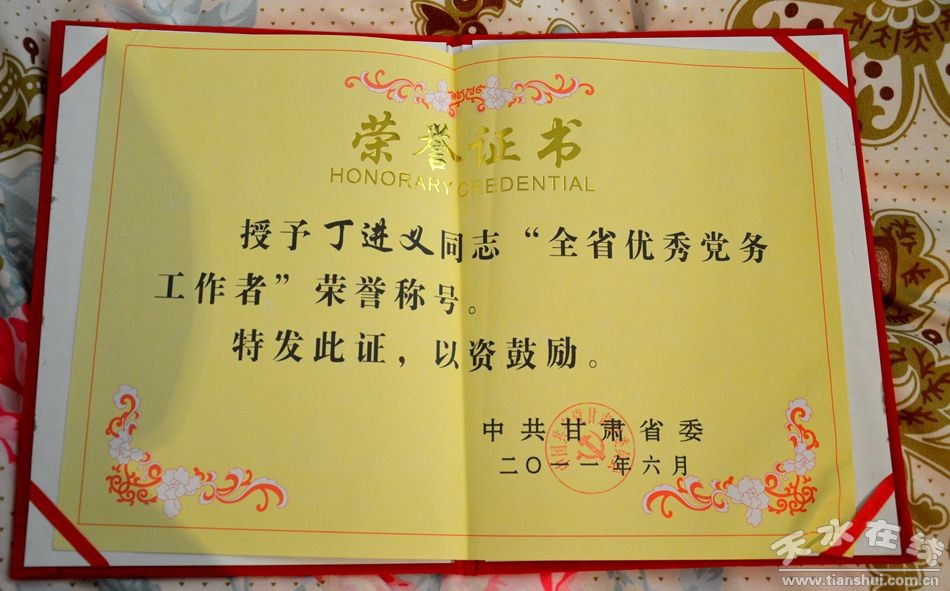 荣誉证书
HONORARY CREDENTIAL
授予丁进义同志“全省优秀党务
工作者”荣誉称号。
特发此证，以资鼓励。
中共甘肃省委
二〇一一年六月
天水在线
www.tianshui.com.cn